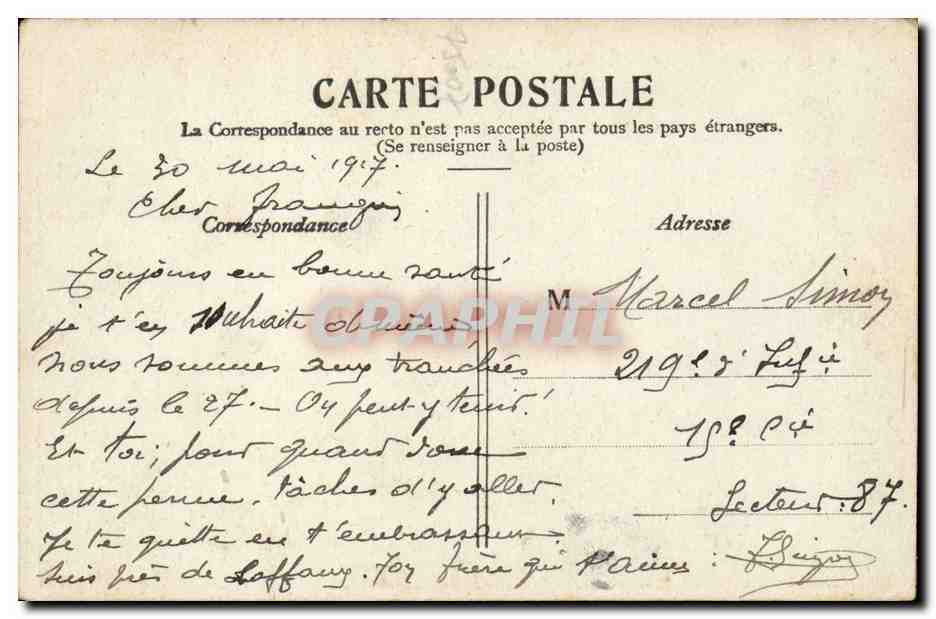 CARTE POSTALE
La Correspondance au recto n'est pas acceptée par tous les pays étrangers.
(Se renseigner à la poste)
Le 30 mai 1917.
Cher frangin
Correspondance
Toujours en bonne santé
je t'en souhaite de même
nous sommes aux tranchées
depuis le 27. - On peut y tenir!
Et toi; pour quand donc
cette perme. tâches d'y aller.
Je te quitte en t'embrassant
suis près de Laffaux. Ton frère qui t'aime: Simon
Adresse
M Marcel Simon
219e d'Infie
15e Cie
Secteur: 87.
CPAPHIL